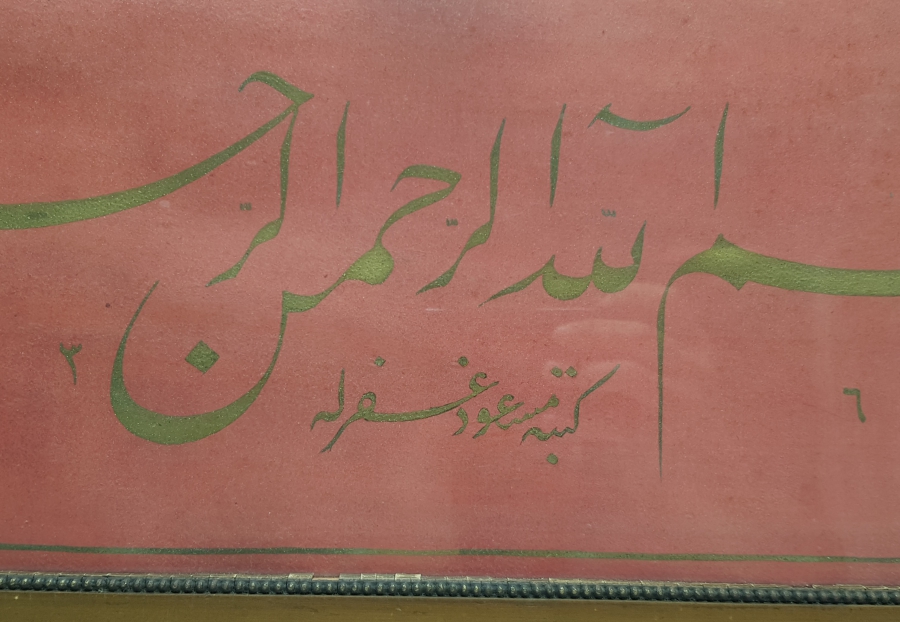 ـم الله الرحمن الرحـ
كتبه مسعود غفرله
٣ ٦